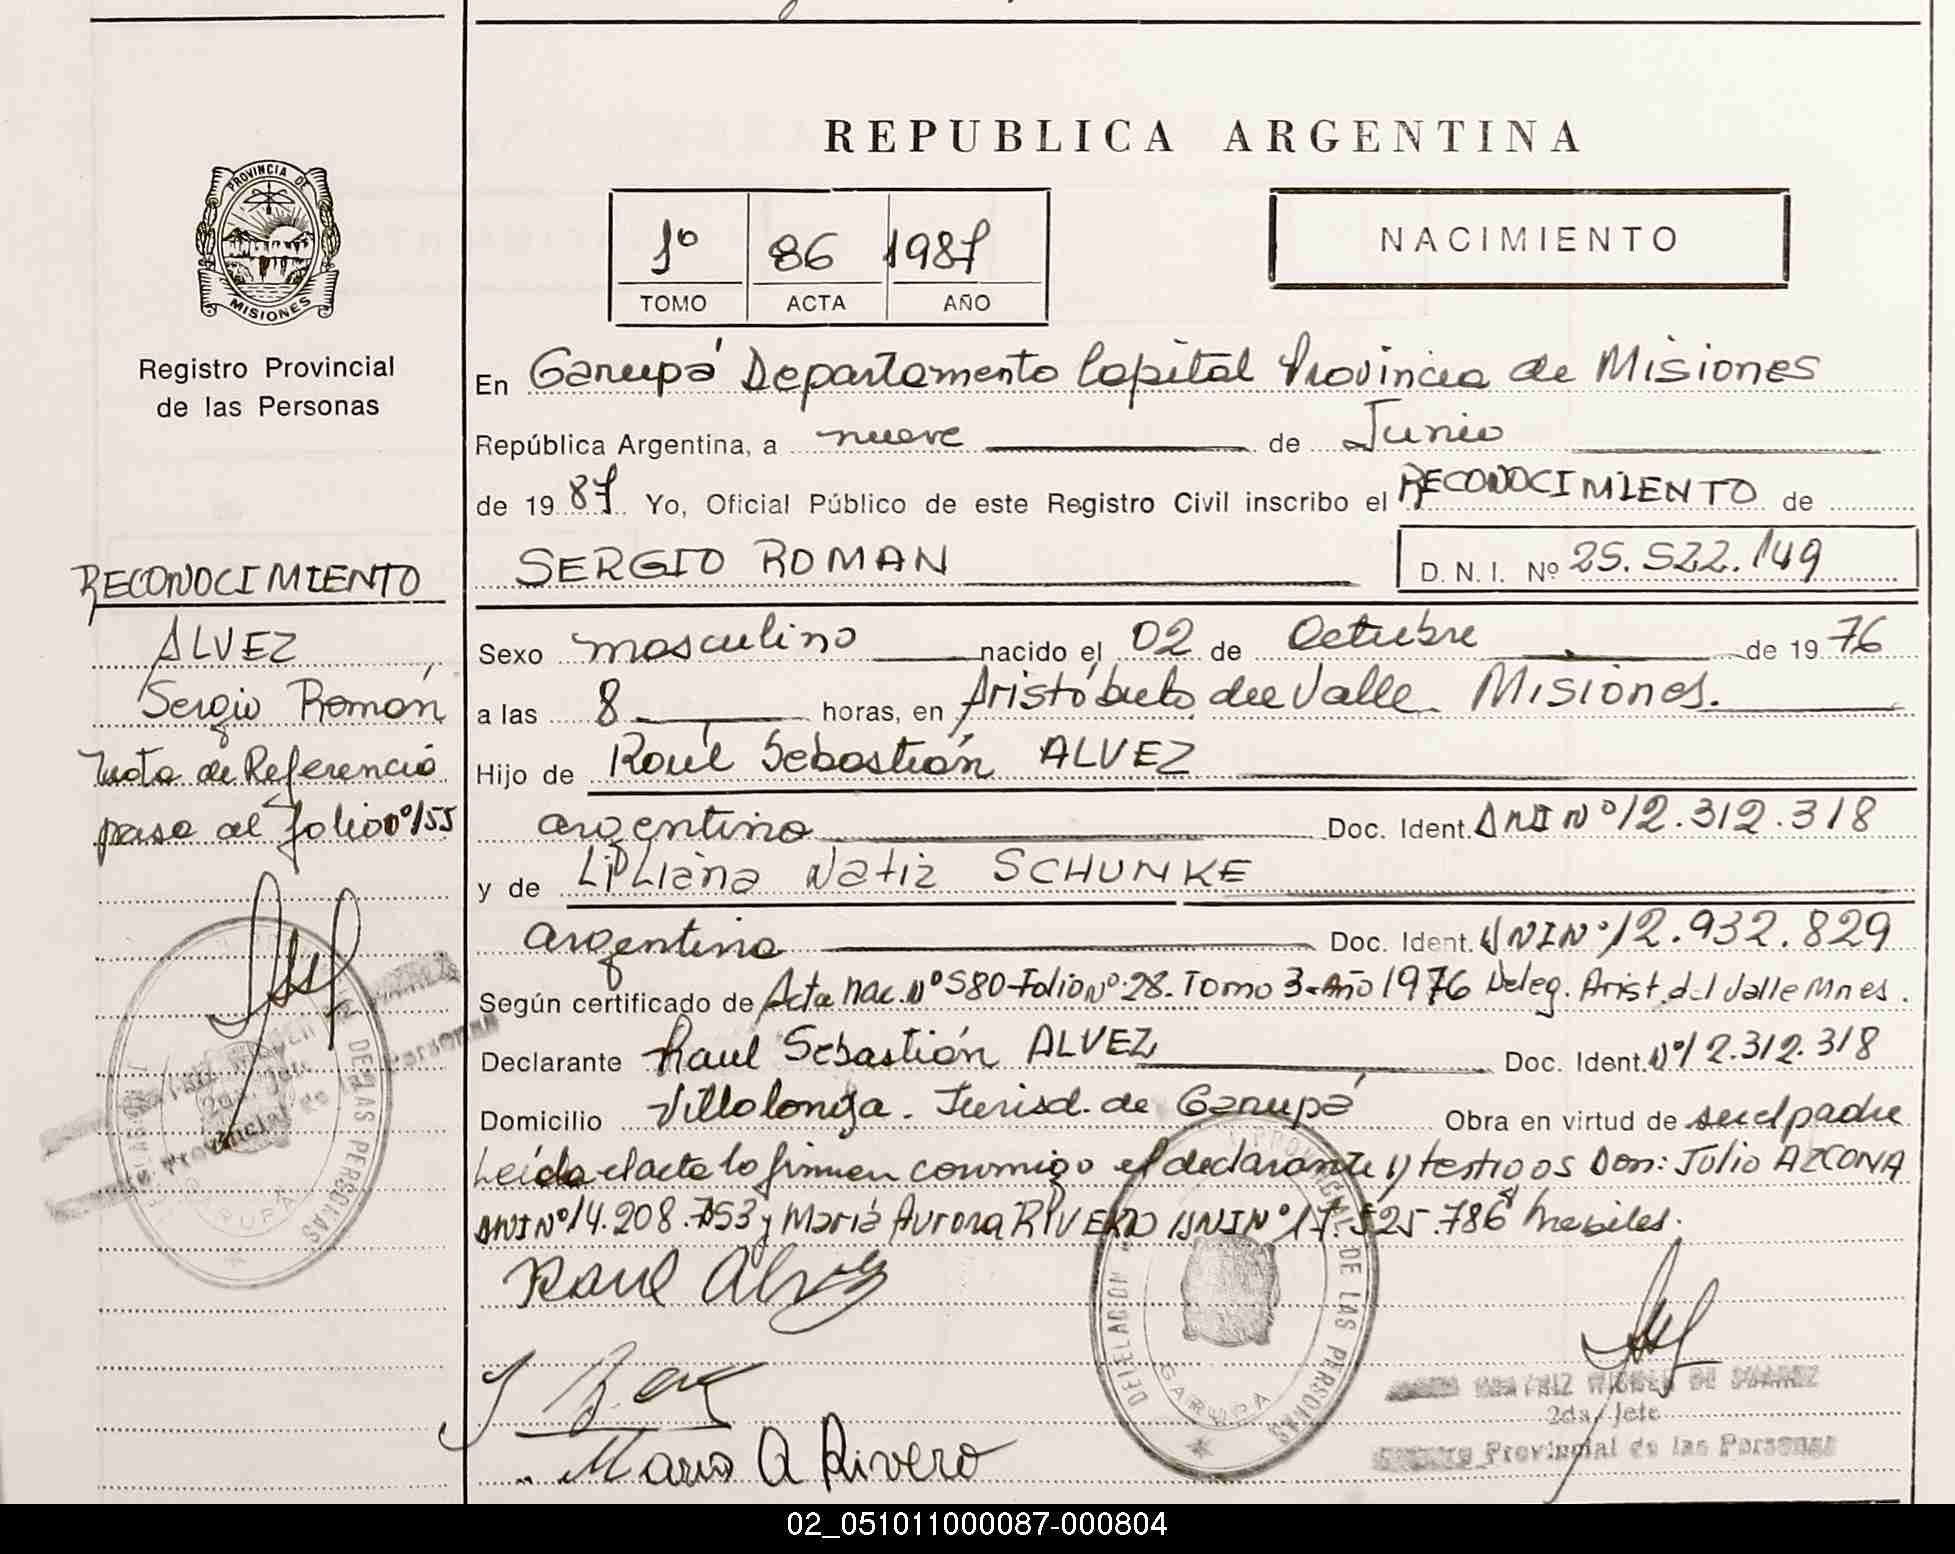 REPUBLICA ARGENTINA
PROVINCIA DE
MISIONES
Registro Provincial
de las Personas
1º 86 1987
TOMO ACTA AÑO
NACIMIENTO
En Garupá Departamento Capital Provincia de Misiones
República Argentina, a nueve de Junio
de 1987 Yo, Oficial Público de este Registro Civil inscribo el RECONOCIMIENTO de
SERGIO ROMAN D. N. I. Nº 25.522.149
RECONOCIMIENTO
ALVEZ
Sergio Román
Nota de Referencia
pasa al folio nº 155
Sexo masculino nacido el 02 de Octubre de 1976
a las 8 horas, en Aristóbulo del Valle Misiones.
Hijo de Raúl Sebastián ALVEZ
argentino Doc. Ident. DNI Nº 12.312.318
y de Natiz SCHUNKE
argentina Doc. Ident. DNI Nº 12.932.829
Según certificado de Acta nac. Nº 580-Folio Nº 28. Tomo 3-Año 1976 Deleg. Arist. del Valle Mnes.
Declarante Raul Sebastián ALVEZ Doc. Ident. Nº 12.312.318
Domicilio Villalonga. Jurisd. de Garupá Obra en virtud de ser el padre
Leída el acta la firman conmigo el declarante y testigos Don: Julio AZCONA
DNI Nº 14.208.753 y María Aurora RIVERO DNI Nº 17.525.786 habiles.
Raul Alvez
Maria A Rivero
DELELACION PROVINCIAL DE LAS PERSONAS
GARUPA
2da. Jefe
Provincial de las Personas
02_051011000087-000804